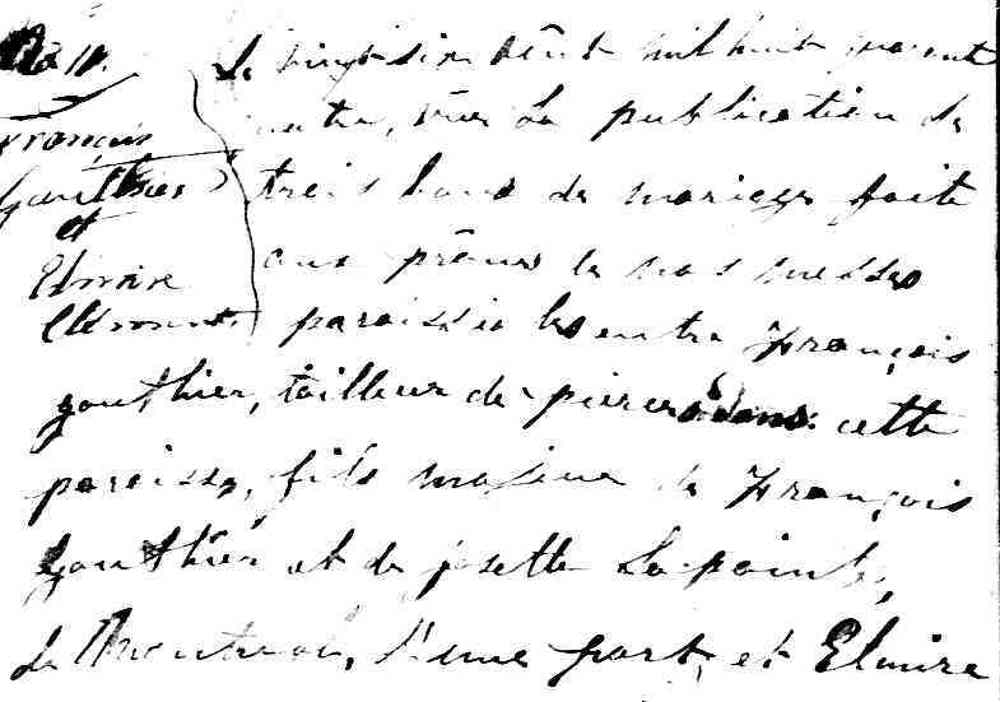 François
Gauthier
et
Elmire
Le vingt six Août mil huit quarante
quatre, vue la publication de
trois bans de mariage faite
aux prônes de nos messes
paroissiales entre François
gauthier, tailleur de pierres dans cette
paroisse, fils majeur de François
Gauthier et de josette Lapointe,
de Montreal, d'une part, et Elmire